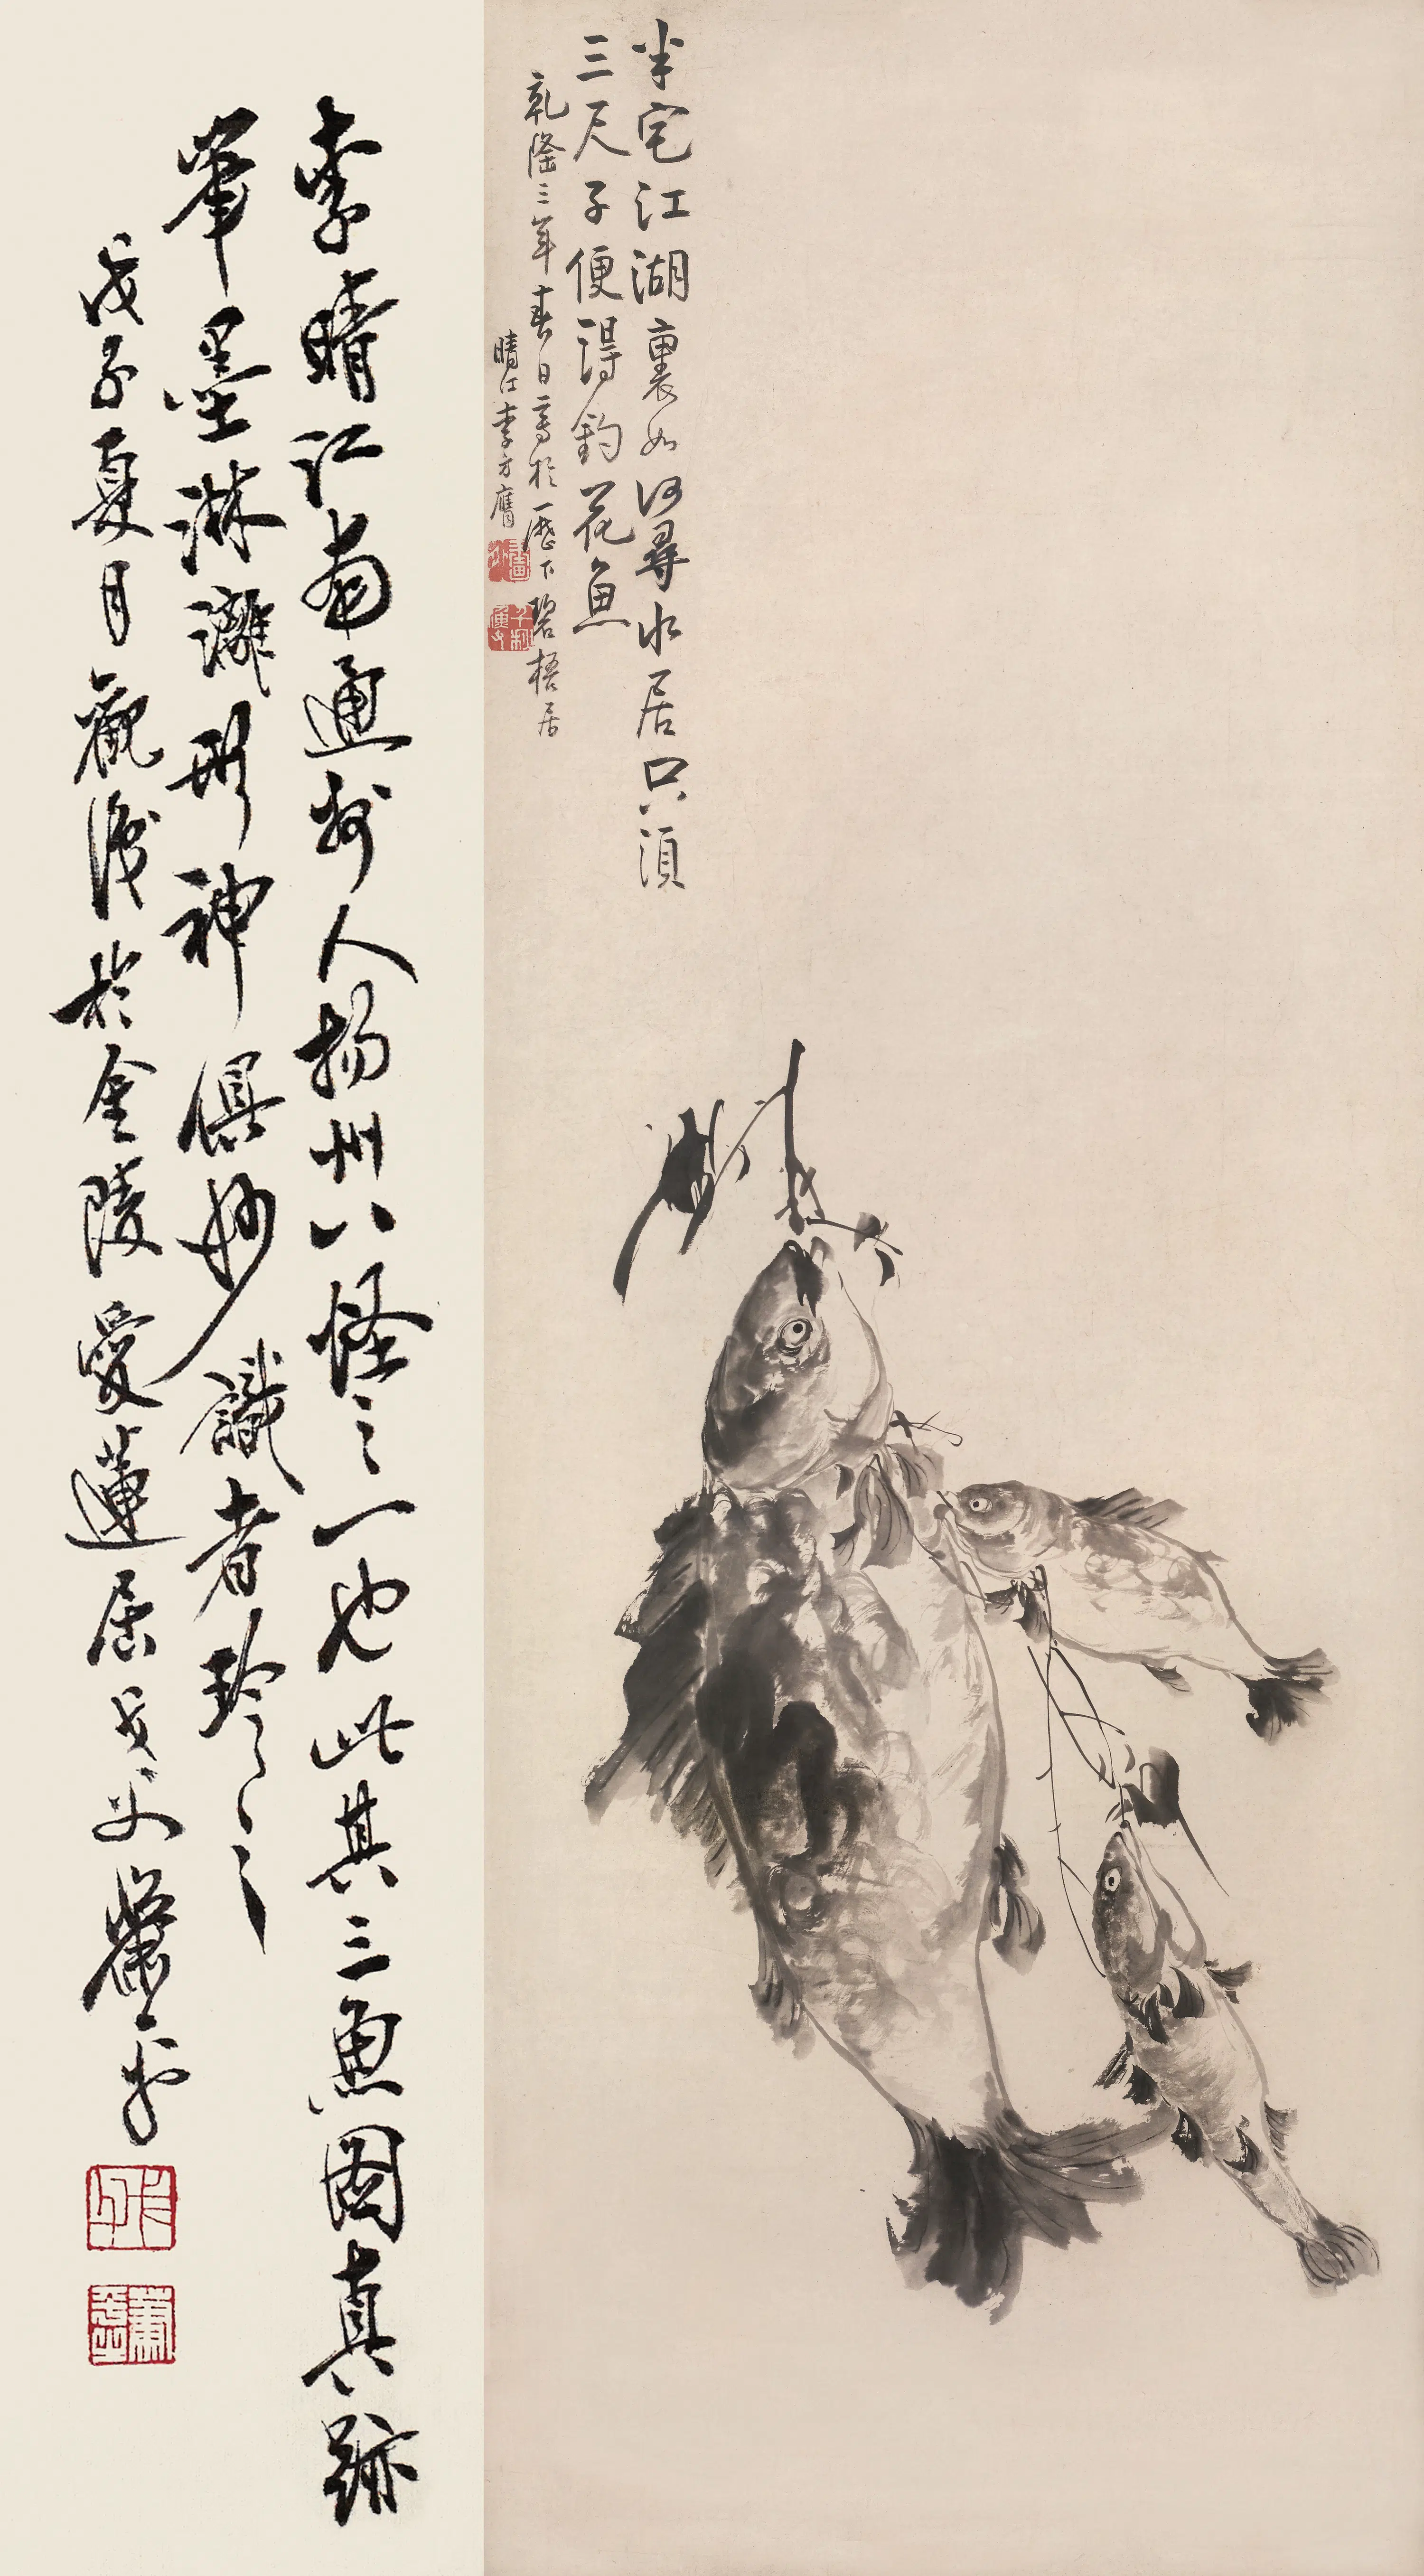 半宅江湖裏如何尋水居只須
三尺子便得釣花魚
乾隆三年春日寫於歷下碧梧居
晴江李方膺
李晴江南通州人揚州八怪之一也此其三魚圖真跡
筆墨淋漓形神俱妙識者珍之
戊子夏月觀後於金陵愛蓮居戈父蕭平